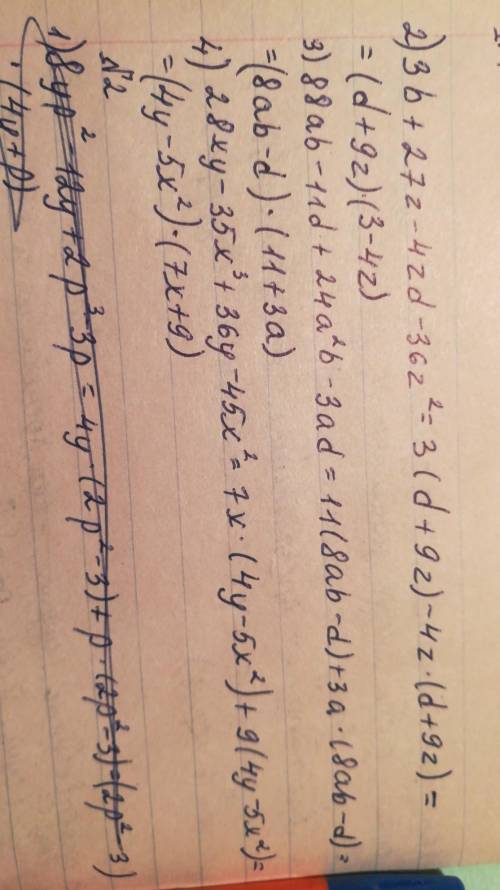 2) 3b + 27z - 4zd - 36z² = 3(d + 9z) - 4z·(d + 9z) =
= (d + 9z)·(3 - 4z)
3) 88ab - 11d + 24a²b - 3ad = 11(8ab - d) + 3a·(8ab - d) =
= (8ab - d)·(11 + 3a)
4) 28xy - 35x³ + 36y - 45x² = 7x·(4y - 5x²) + 9(4y - 5x²) =
= (4y - 5x²)·(7x + 9)
№2
1) 8yp² - 12y + 2p³ - 3p = 4y·(2p² - 3) + p·(2p² - 3) = (2p² - 3)
·(4y + p)